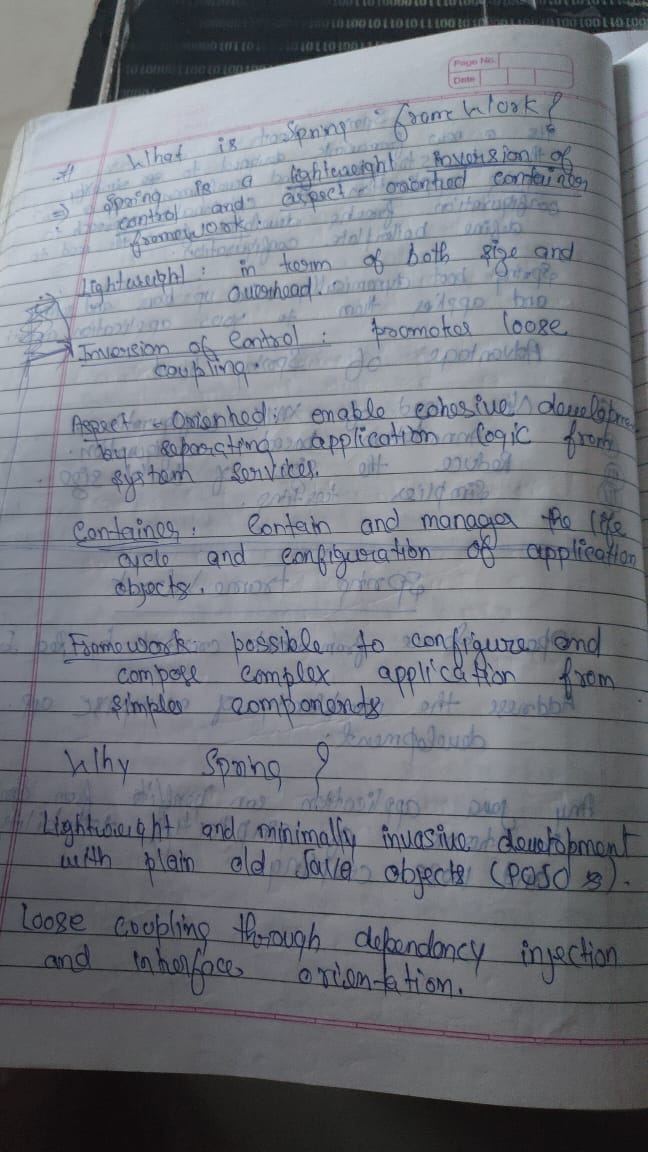 Page No.
Date
* What is Spring frame Work?
⇒ Spring is a lightweight inversion of
control and aspect oriented container
framework.
Lightweight : in term of both size and
overhead.
Inversion of Control : promotes loose
coupling.
Aspect - Oriented : enable cohesive development
by separating application logic from
system services.
Container : Contain and manager the life
cycle and configuration of application
objects.
Framework possible to configure and
compose complex application from
simples components
Why Spring ?
Lightweight and minimally invasive development
with plain old Java objects (POJO s).
Loose coupling through dependancy injection
and interface orientation.